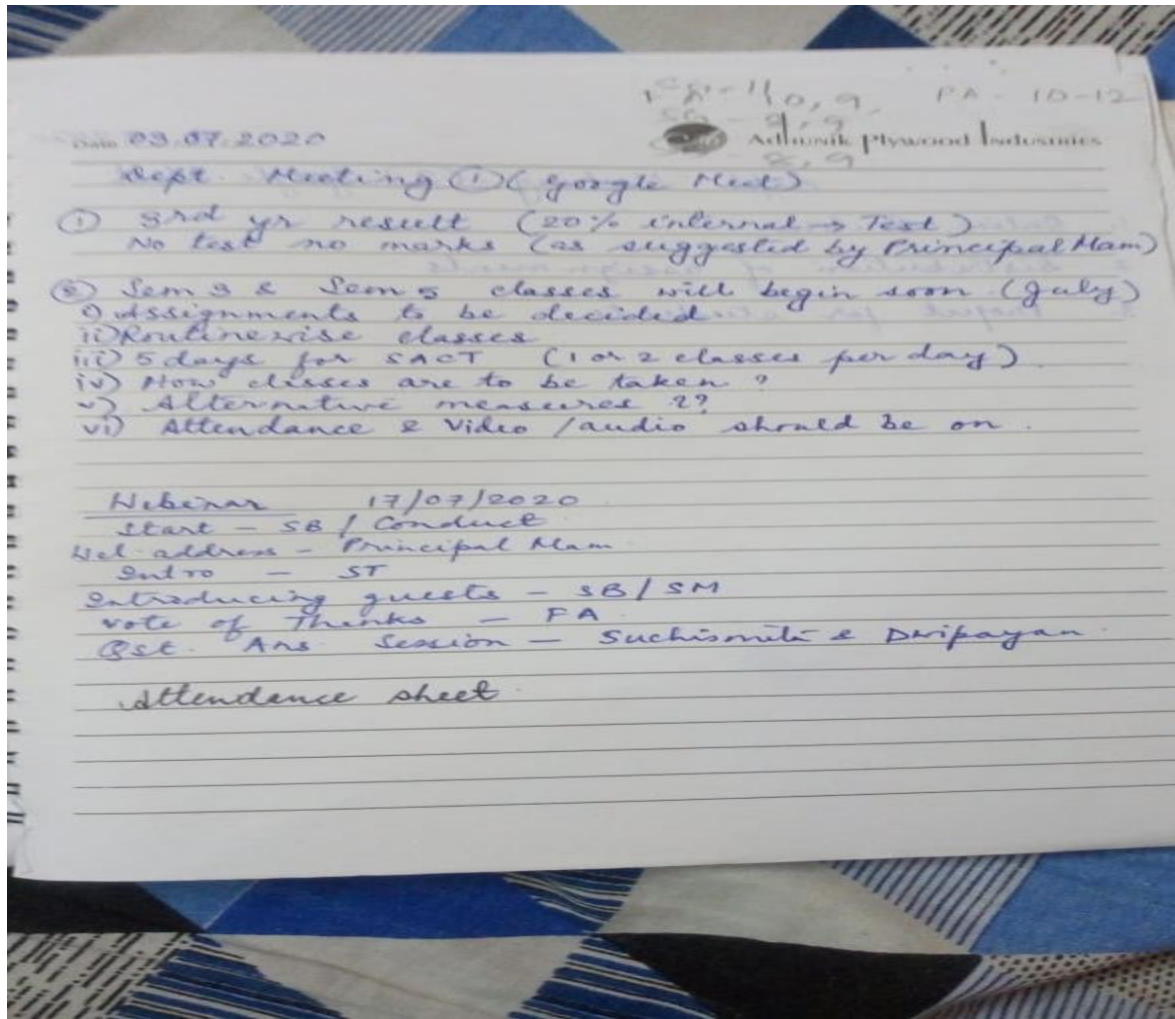 PA - 10-12
Date 03.07.2020
Adhunik Plywood Industries
Dept. Meeting ① (Google Meet)
① 3rd yr result (20% internal → Test)
No test no marks (as suggested by Principal Mam)
② Sem 3 & Sem 5 classes will begin soon (July)
i) Assignments to be decided
ii) Routinewise classes
iii) 5 days for SACT (1 or 2 classes per day)
iv) How classes are to be taken ?
v) Alternative measures ??
vi) Attendance & Video /audio should be on.
Webinar 17/07/2020
Start - SB / Conduct
Wel. address - Principal Mam
Intro - ST
Introducing guests - SB / SM
Vote of Thanks - FA
Qst. Ans. Session - Suchismita & Dwipayan.
Attendance sheet.